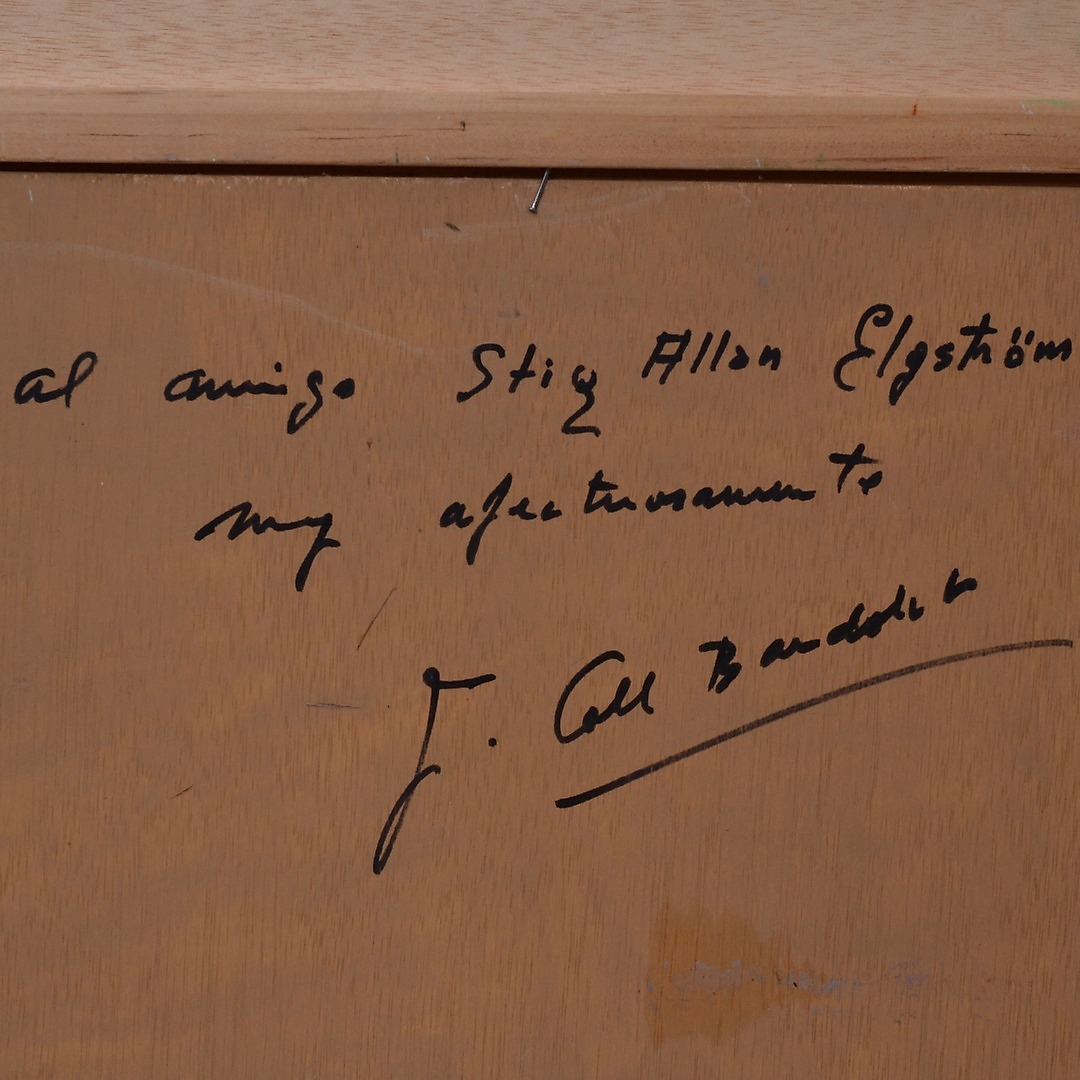 al amigo Stig Allan Elgström
muy afectuosamente
J. Coll Bardolet